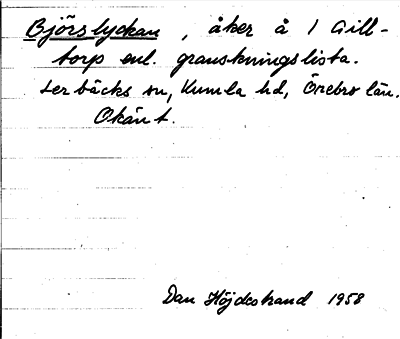 Björslyckan, åker å 1 Gill-
torp enl. granskningslista.
Lerbäcks sn, Kumla hd, Örebro län.
Okänt.
Dan Höjdestrand 1958